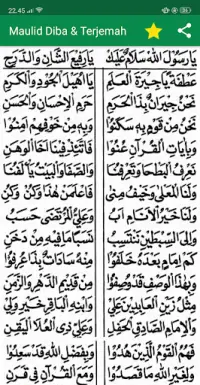 22.45
Maulid Diba & Terjemah
يَارَسُوْلَ اللهِ سَلاَمٌ عَلَيْكَ يَارَفِيْعَ الشَّانِ وَالدَّرَجِ
عَطْفَةً يَاجِيْرَةَ الْعَلَمِ يَااُهَيْلَ الْجُوْدِ وَالْكَرَمِ
نَحْنُ جِيْرَانٌ بِذَا الْحَرَمِ حَرَمِ الْاِحْسَانِ وَالْحَسَنِ
نَحْنُ مِنْ قَوْمٍ بِهِ سَكَنُوْا وَبِهِ مِنْ خَوْفِهِمْ اَمِنُوْا
وَبِاٰيَاتِ الْقُرْاٰنِ عُنُوْا فَاتَّئِدْ فِيْنَا اَخَا الْوَهَنِ
نَعْرِفُ الْبَطْحَا وَتَعْرِفُنَا وَالصَّفَا وَالْبَيْتُ يَأْلَفُنَا
وَلَنَا الْمَعْلٰى وَخَيْفُ مِنٰى فَاعْلَمَنْ هٰذَا وَكُنْ وَكُنِ
وَلَنَا خَيْرُ الْاَنَامِ اَبُ وَعَلِيُّ الْمُرْتَضٰى حَسَبُ
وَاِلَى السِّبْطَيْنِ نَنْتَسِبُ نَسَبًا مَافِيْهِ مِنْ دَخَنِ
كَمْ اِمَامٍ بَعْدَهُ خَلَفُوْا مِنْهُ سَادَاتٌ بِذَا عُرِفُوْا
وَبِهٰذَا الْوَصْفِ قَدْ وُصِفُوْا مِنْ قَدِيْمِ الدَّهْرِ وَالزَّمَنِ
مِثْلُ زَيْنِ الْعَابِدِيْنَ عَلِيْ وَابْنِهِ الْبَاقِرِ خَيْرِ وَلِيْ
وَالْاِمَامِ الصَّادِقِ الْحَفِلِ وَعَلِيٍّ ذِى الْعُلاَ الْيَقِنِ
فَهُمُ الْقَوْمُ الَّذِيْنَ هُدُوْا وَبِفَضْلِ اللهِ قَدْ سَعِدُوْا
وَلِغَيْرِ اللهِ مَاقَصَدُوْا وَمَعَ الْقُرْاٰنِ فِيْ قَرَنِ